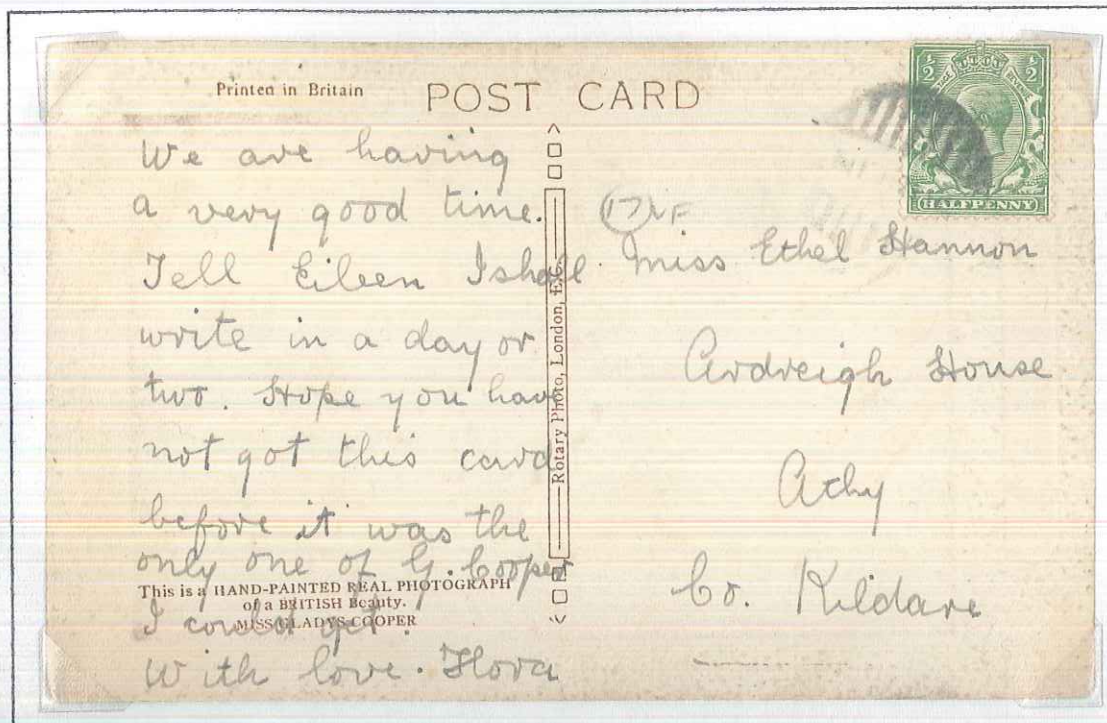 Printed in Britain
POST CARD
1/2 1/2
HALFPENNY
We are having
a very good time.
Tell Eileen I shall
write in a day or
two. Hope you have
not got this card
before it was the
only one of G. Cooper
I could get.
With love. Flora
This is a HAND-PAINTED REAL PHOTOGRAPH
of a BRITISH Beauty.
MISS GLADYS COOPER
Rotary Photo, London, E.C.
(17)
Miss Ethel Hannon
Ardreigh House
Athy
Co. Kildare